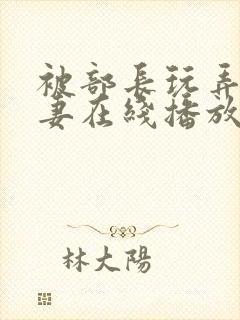 被部長玩弄
妻在綫播放
林大陽